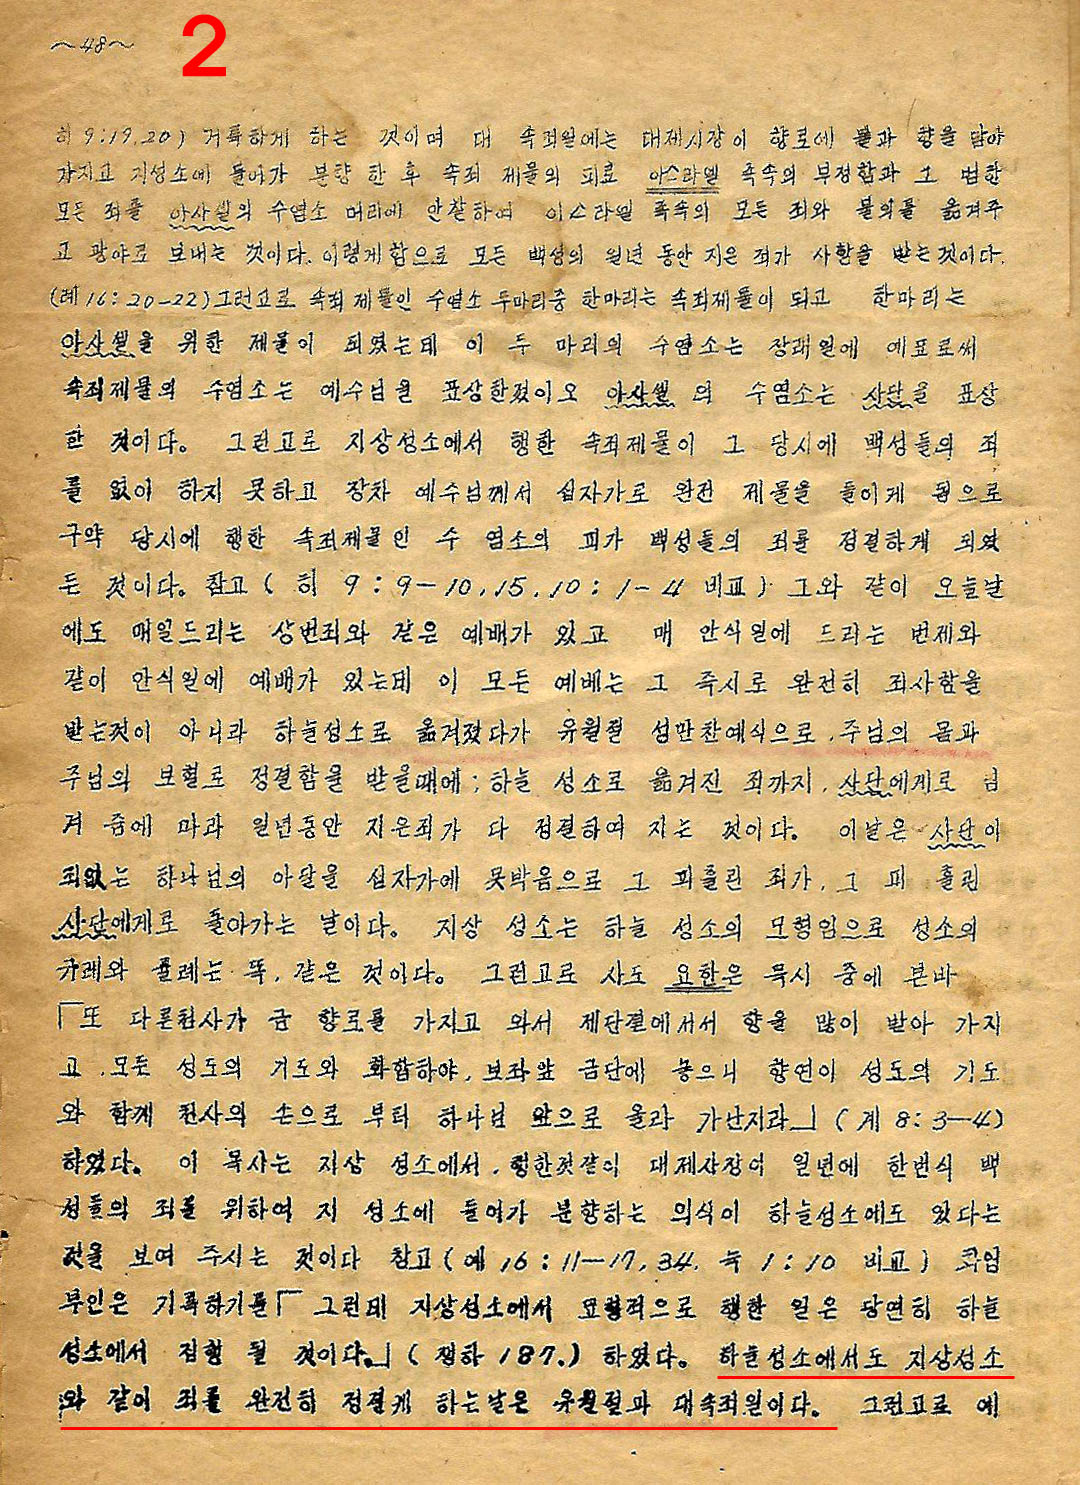 ~48~
2
히 9:19,20) 거룩하게 하는 것이며 대 속죄일에는 대제사장이 향로에 불과 향을 담아
가지고 지성소에 들어가 분향 한 후 속죄 제물의 피로 이스라엘 족속의 부정함과 그 범한
모든 죄를 아사셀의 수염소 머리에 안찰하여 이스라엘 족속의 모든 죄와 불의를 옮겨주
고 광야로 보내는 것이다. 이렇게함으로 모든 백성의 일년 동안 지은 죄가 사함을 받는것이다.
(레 16:20-22) 그런고로 속죄제물인 수염소 두마리중 한마리는 속죄제물이 되고 한마리는
아사셀을 위한 제물이 되였는데 이 두 마리의 수염소는 장래일에 예표로써
속죄제물의 수염소는 예수님을 표상한것이오 아사셀의 수염소는 사단을 표상
한 것이다. 그런고로 지상성소에서 행한 속죄제물이 그 당시에 백성들의 죄
를 없이 하지 못하고 장차 예수님께서 십자가로 완전 제물을 들이게 됨으로
구약 당시에 행한 속죄제물인 수 염소의 피가 백성들의 죄를 정결하게 되였
든 것이다. 참고 ( 히 9:9-10,15,10:1-4 비교 ) 그와 같이 오늘날
에도 매일드리는 상번죄와 같은 예배가 있고 매 안식일에 드리는 번제와
같이 안식일에 예배가 있는데 이 모든 예배는 그 즉시로 완전히 죄사함을
받는것이 아니라 하늘성소로 옮겨졌다가 유월절 성만찬예식으로, 주님의 몸과
주님의 보혈로 정결함을 받을때에; 하늘 성소로 옮겨진 죄까지, 사단에게로 넘
겨 줌에 따라 일년동안 지은죄가 다 정결하여 지는 것이다. 이날은 사단이
죄없는 하나님의 아달을 십자가에 못박음으로 그 피흘린 죄가, 그 피 흘린
사단에게로 돌아가는 날이다. 지상 성소는 하늘 성소의 모형임으로 성소의
규례와 률례는 똑, 같은 것이다. 그런고로 사도 요한은 묵시 중에 본바
「또 다른천사가 금 향로를 가지고 와서 제단곁에서서 향을 많이 받아 가지
고, 모든 성도의 기도와 합합하야, 보좌앞 금단에 놓으니 향연이 성도의 기도
와 함께 천사의 손으로 부터 하나님 앞으로 올라 가난지라」 ( 계 8:3-4)
하였다. 이 묵사는 지상 성소에서, 행한것같이 대제사장이 일년에 한번식 백
성들의 죄를 위하여 지 성소에 들어가 분향하는 의식이 하늘성소에도 있다는
것을 보여 주시는 것이다 참고 ( 레 16:11-17,34. 눅 1:10 비교 ) 화잍
부인은 기록하기를「 그런데 지상성소에서 표형적으로 행한 일은 당연히 하늘
성소에서 집행 될 것이다.」 ( 쟁하 187.) 하였다. 하늘성소에서도 지상성소
와 같이 죄를 완전히 정결케 하는날은 유월절과 대속죄일이다. 그런고로 예